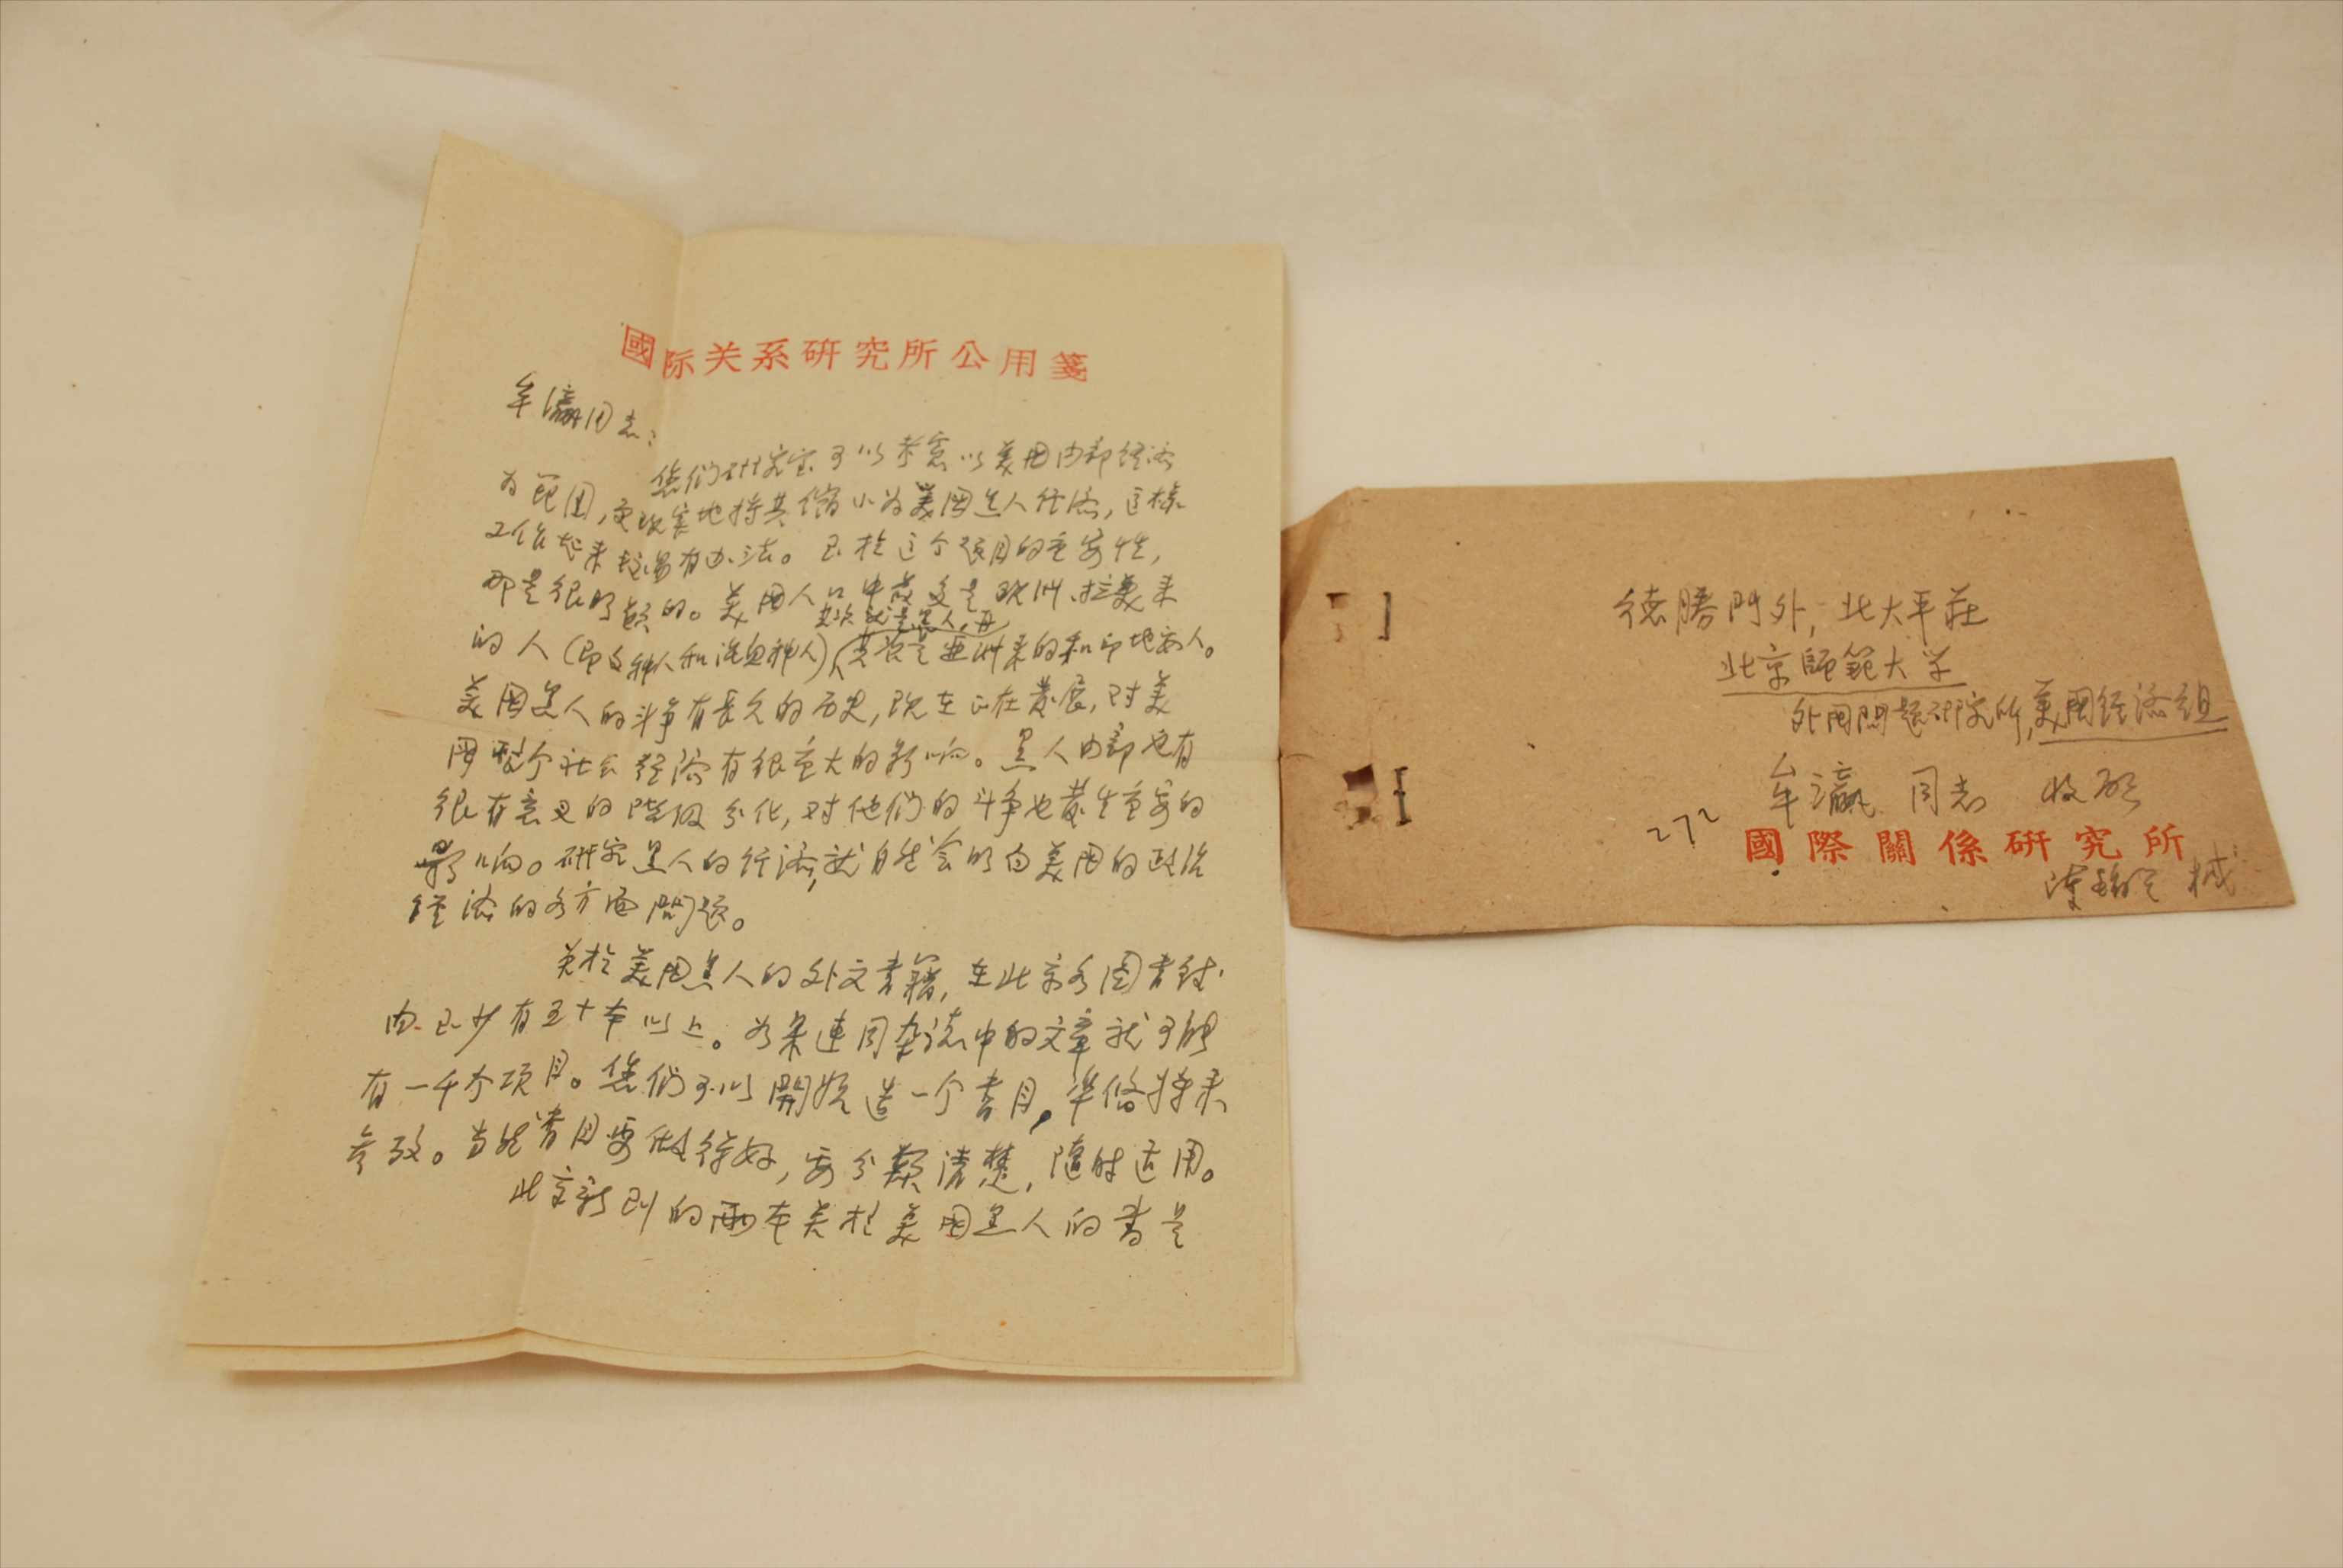 國际关系研究所公用箋
牟瀛同志:
您们研究室可以考虑以美国内部经济
为范围,更现实地将其缩小为美国黑人经济,这样
工作起来较易有办法。至於这个项目的重要性,
那是很明显的。美国人口中最多是欧洲、拉美来
其次就是黑人,再
的人(即白种人和混血种人),其次是亚洲来的和印地安人。
美国黑人的斗争有長久的历史,现在正在發展,对美
国整个社会经济有很重大的影响。黑人内部也有
很有意义的階级分化,对他们的斗争也發生重要的
影响。研究黑人的经济,就自然会明白美国的政治
经济的各方面問题。
关於美国黑人的外文書籍,在北京各图書馆
内至少有五十本以上。如果连同杂誌中的文章就可能
有一千个项目。您们可以開始造一个書目,準俻将来
参攷。当然書目要做得好,要分類清楚,随时适用。
北京新到的两本关於美国黑人的書是
德勝門外,北太平莊
北京師範大学
外国問题研究所,美国经济组
牟瀛 同志 收啟
272
國際關係研究所
陳翰笙 械